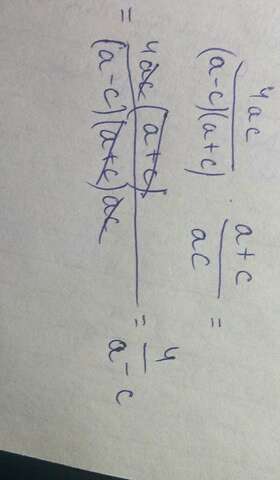 4ac/(a-c)(a+c) · a+c/ac =
= 4ac(a+c)/(a-c)(a+c)ac = 4/a-c